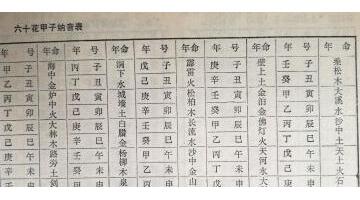 六十花甲子纳音表
年号 命 年号 命 年号 命 年号 命 年号 命
甲乙丙丁戊己庚
子丑寅卯辰巳午未
海中金炉中火大林木路旁土剑
丙丁戊己庚辛壬
子丑寅卯辰巳午未
涧下水城墙土白腊金杨柳木泉
戊己庚辛壬癸甲
子丑寅卯辰巳午未
霹雳火松柏木长流水沙中金山
庚辛壬癸甲乙丙
子丑寅卯辰巳午未
壁上土金泊金佛灯火天河水大
壬癸甲乙丙丁戊
子丑寅卯辰巳午未
桑松木大溪水沙中土天上火石